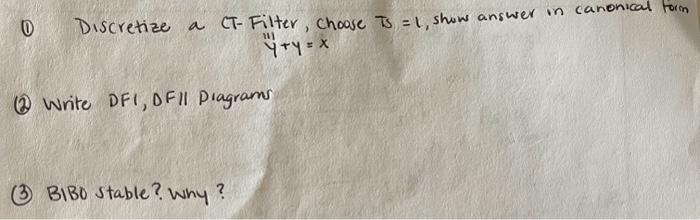 ① Discretize a CT-Filter, choose Ts = 1, show answer in canonical form
y''' + y = x
② Write DF1, DF11 Diagrams
③ BIBO stable? Why?